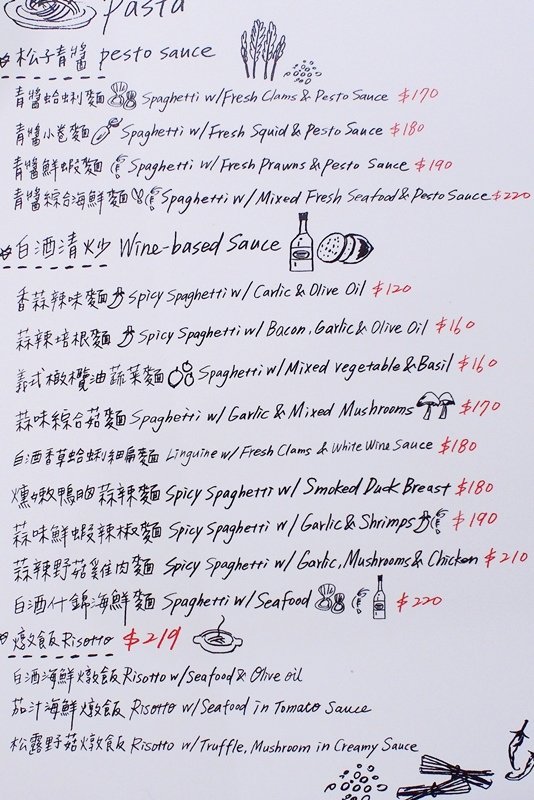 Pasta
松子青醬 pesto sauce
青醬蛤蜊麵 Spaghetti w/Fresh Clams & Pesto Sauce $170
青醬小卷麵 Spaghetti w/Fresh Squid & Pesto Sauce $180
青醬鮮蝦麵 Spaghetti w/Fresh Prawns & Pesto Sauce $190
青醬綜合海鮮麵 Spaghetti w/Mixed Fresh Seafood & Pesto Sauce $220
白酒清炒 Wine-based Sauce
香蒜辣味麵 Spicy Spaghetti w/ Garlic & Olive Oil $120
蒜辣培根麵 Spicy Spaghetti w/ Bacon, Garlic & Olive Oil $160
義式橄欖油蔬菜麵 Spaghetti w/Mixed vegetable & Basil $160
蒜味綜合菇麵 Spaghetti w/ Garlic & Mixed Mushrooms $170
白酒香草蛤蜊細扁麵 Linguine w/ Fresh Clams & White Wine Sauce $180
燻嫩鴨胸蒜辣麵 Spicy Spaghetti w/ Smoked Duck Breast $180
蒜味鮮蝦辣椒麵 Spicy Spaghetti w/ Garlic & Shrimps $190
蒜辣野菇雞肉麵 Spicy Spaghetti w/ Garlic, Mushrooms & Chicken $210
白酒什錦海鮮麵 Spaghetti w/Seafood $220
燉飯 Risotto $219
白酒海鮮燉飯 Risotto w/Seafood & Olive oil
茄汁海鮮燉飯 Risotto w/Seafood in Tomato Sauce
松露野菇燉飯 Risotto w/Truffle, Mushroom in Creamy Sauce